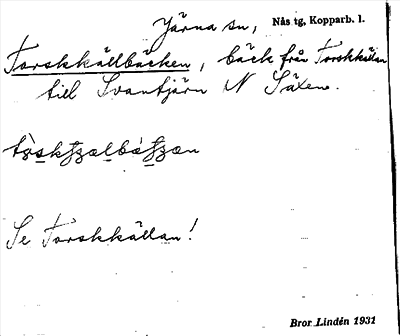 Järna sn, Nås tg, Kopparb. l.
Torskkällbäcken, bäck från Torskkällan
till Svantjärn N Säxen.
Se Torskkällan!
Bror Lindén 1931